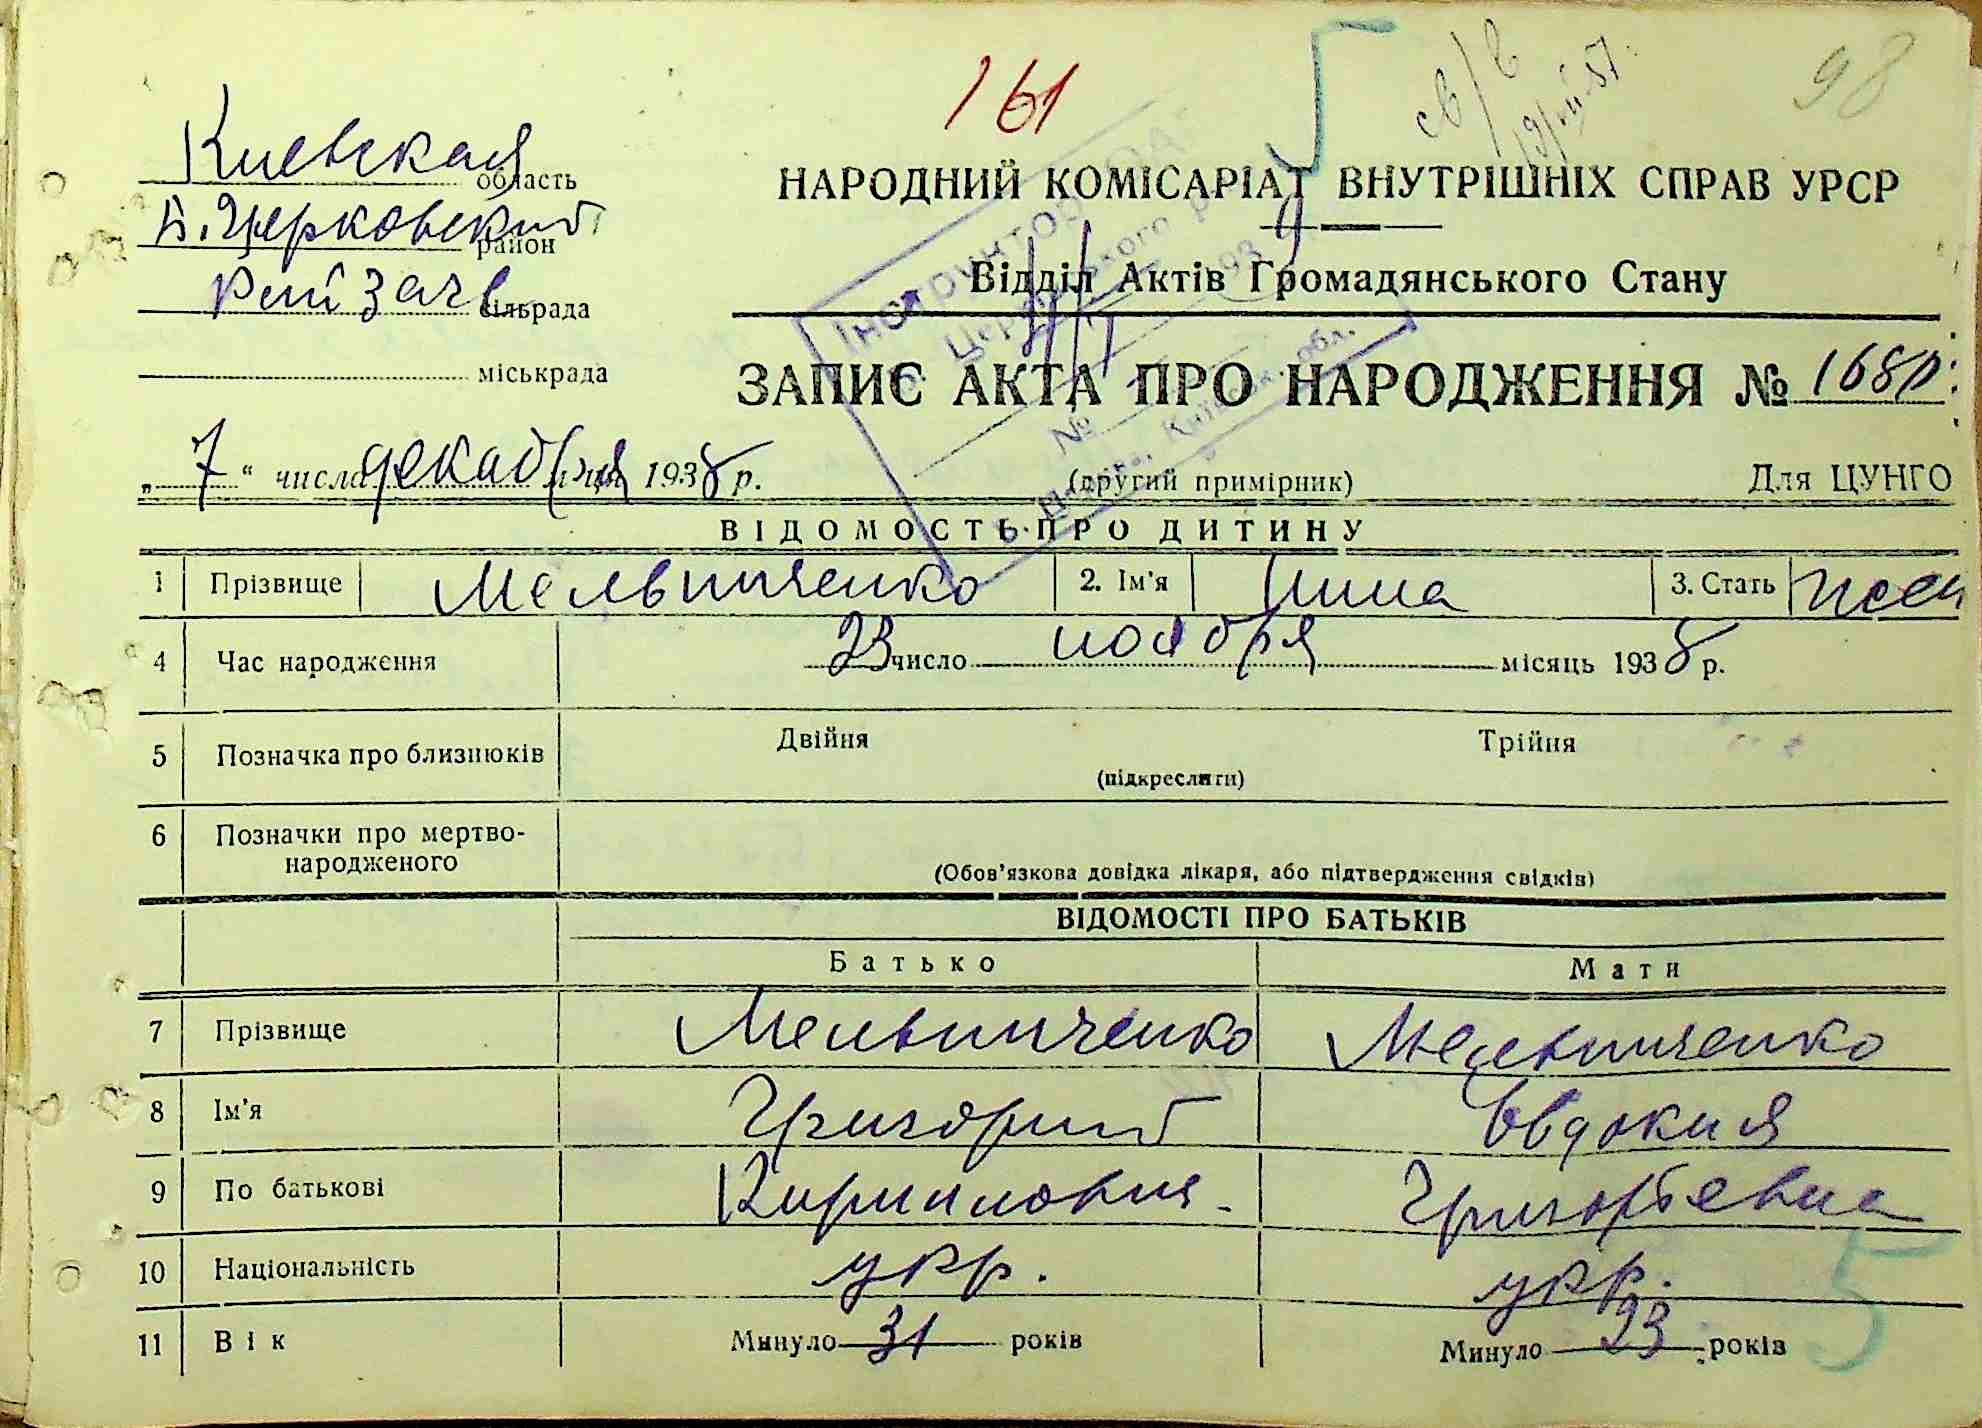 161
98
Киевская область
Б. Церковский район
Рай Загс сільрада
міськрада
НАРОДНИЙ КОМІСАРІАТ ВНУТРІШНІХ СПРАВ УРСР
Відділ Актів Громадянського Стану
ЗАПИС АКТА ПРО НАРОДЖЕННЯ №
„7“ числа декабря м-ця 1938 р.
(другий примірник)
Для ЦУНГО
ВІДОМОСТЬ ПРО ДИТИНУ
1 Прізвище Мельниченко 2. Ім'я Нина 3. Стать жен
4 Час народження 23 число ноября місяць 1938 р.
5 Позначка про близнюків Двійня Трійня
(підкреслити)
6 Позначки про мертво-
народженого
(Обов'язкова довідка лікаря, або підтвердження свідків)
ВІДОМОСТІ ПРО БАТЬКІВ
Батько Мати
7 Прізвище Мельниченко Мельниченко
8 Ім'я Григорий Евдокия
9 По батькові Кириллович Григорьевна
10 Національність укр. укр.
11 Вік Минуло 31 років Минуло 23 років
5